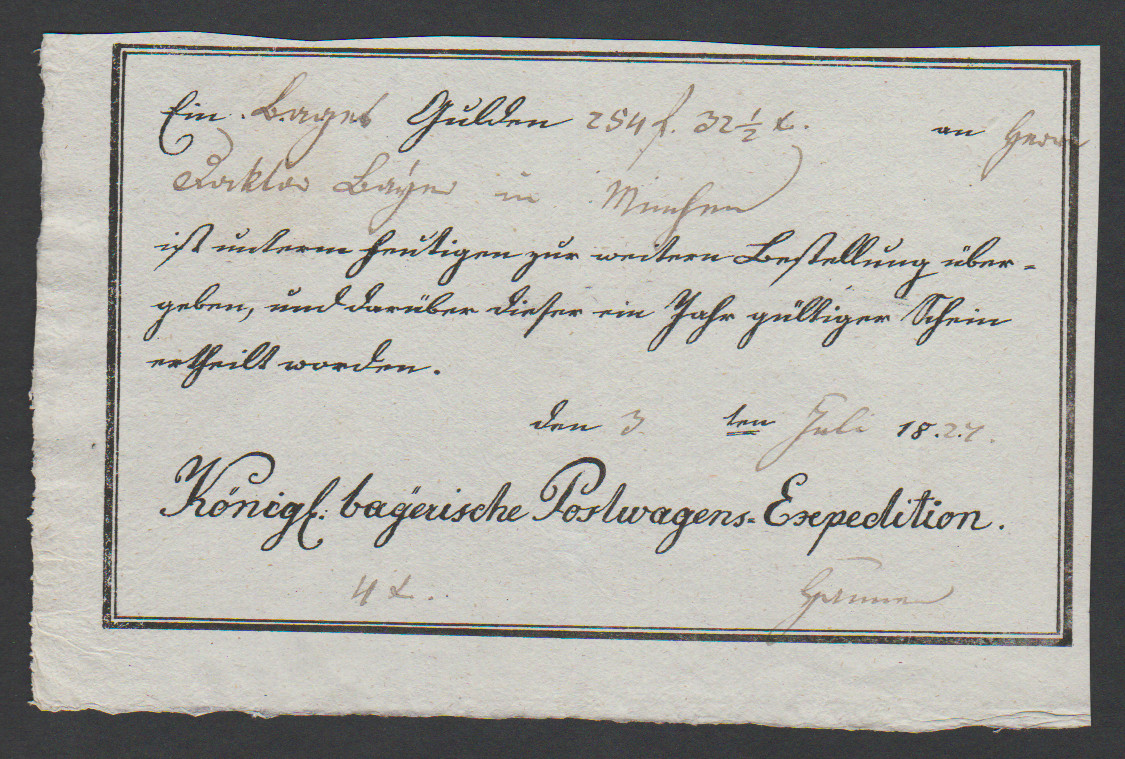 Ein Gulden 254 f. 32 ½ x. an Herrn
Doktor Bayer in München
ist unterm heutigen zur weitern Bestellung über-
geben, und darüber dieser ein Jahr gültiger Schein
ertheilt worden.
den 3 ten Juli 1827.
Königl. bayerische Postwagens-Expedition.
4 x.